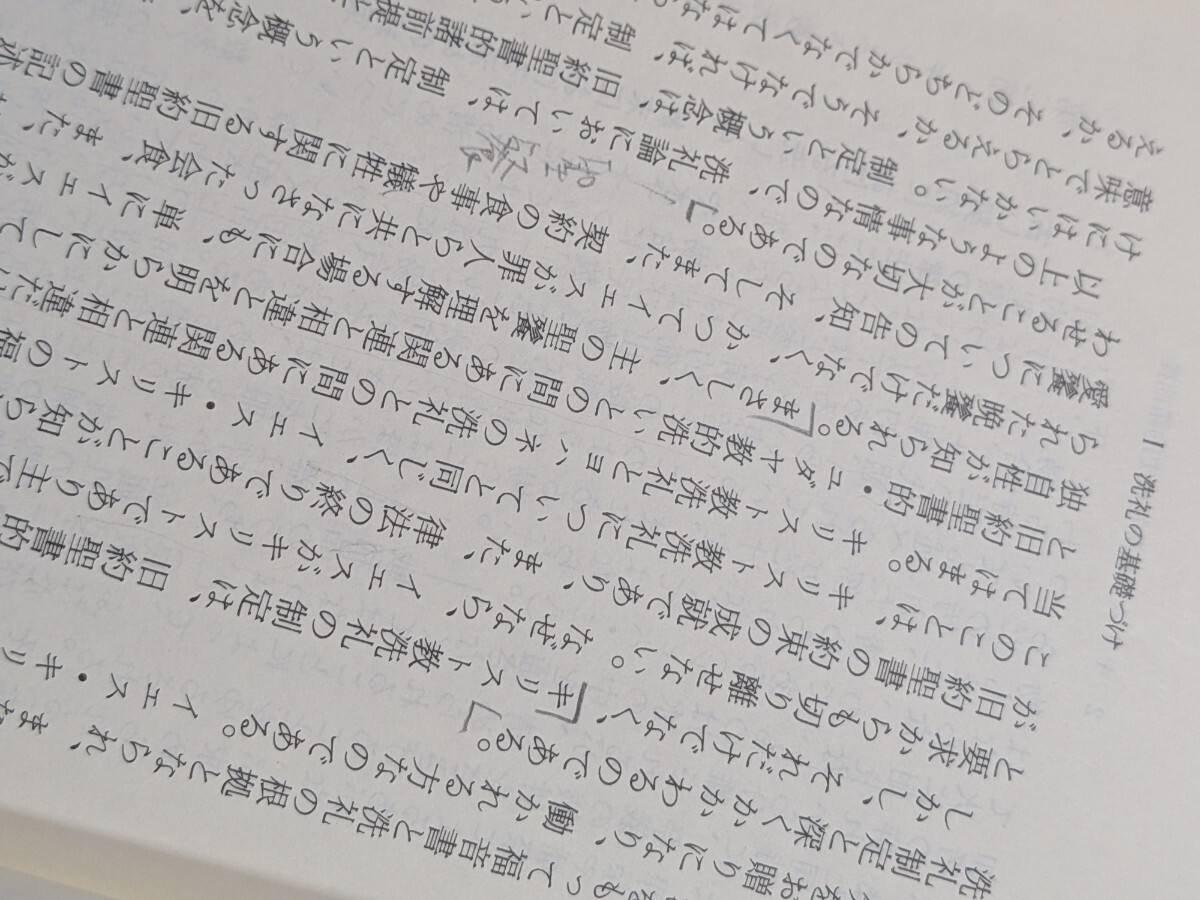 I 洗礼の基礎づけ
をもって福音書と洗礼の根拠となられ、また
をお贈りになり、働かれる方なのである。イエス・キリ
洗礼制定と深くかかわるのである。
しかし、それだけでなく、キリスト教洗礼の制定は、旧約聖書的
と要求からも切り離せない。なぜなら、イエスがキリストであり主で
が旧約聖書の約束の成就であり、また、律法の終りであることが知ら
このことは、キリスト教洗礼について同じく、イエス・キリストの福
当てはまる。キリスト教洗礼とヨハネの洗礼との間にある関連と相違
と旧約聖書的・ユダヤ教的洗いとの間にある関連と相違とを明らかにして
独自性が知られる。まさしく、主の聖餐を理解する場合にも、単にイエスが
られた晩餐だけでなく、かつてイエスが罪人らと共になさった会食、また、
愛餐についての告知、そしてまた、契約の食事や犠牲に関する旧約聖書の記述
わせることが大切なのである。
聖餐
以上のような事情なので、洗礼論においては、制定という概念を、
けにはいかない。制定という概念は、旧約聖書的諸前提と
意味でとらえるか、そうでなければ、制定とい
えるか、そのどちらかでなくてはな